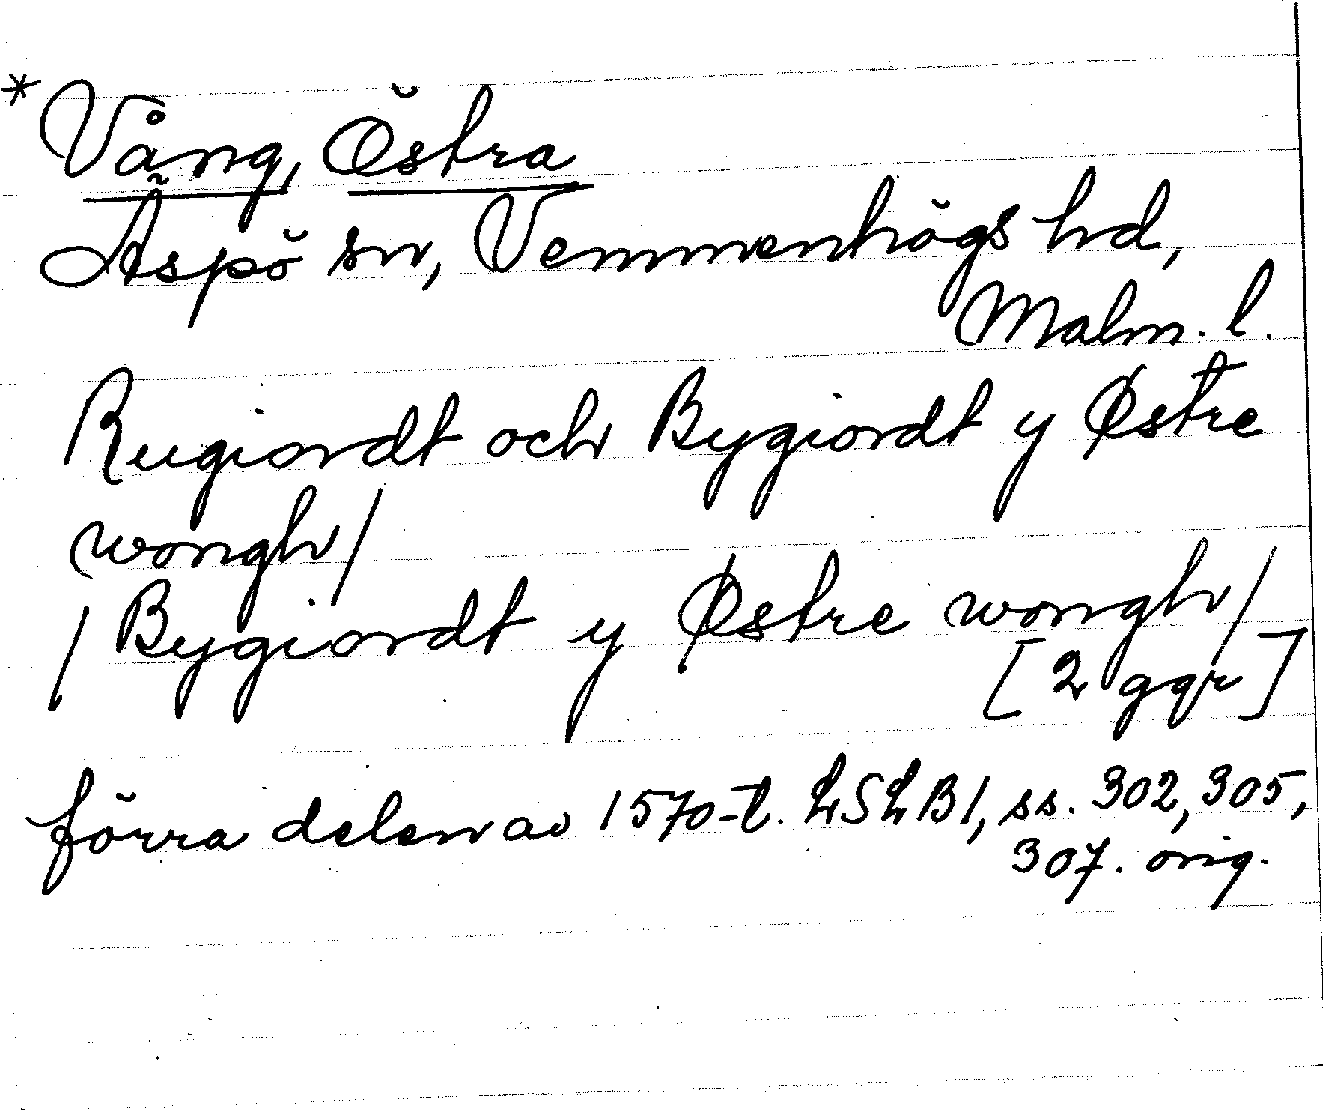 * Vång, Östra
Äspö sn, Vemmenhögs hd,
Malm. l.
Rugiordt och Bygiordt y Østre
wongh/
/Bygiordt y Østre wongh/
[2 ggr]
förra delen av 1570-t. LSLB1, ss. 302, 305,
307. orig.